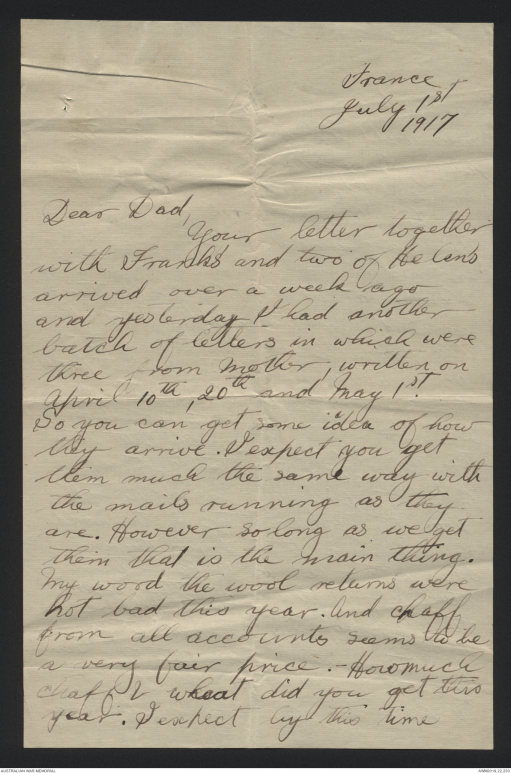 France
July 1st
1917
Dear Dad,
Your letter together
with Frank's and two of Helen's
arrived over a week ago
and yesterday I had another
batch of letters in which were
three from Mother, written on
April 10th, 20th and May 1st.
So you can get some idea of how
they arrive. I expect you get
them much the same way with
the mails running as they
are. However so long as we get
them that is the main thing.
My word the wool returns were
not bad this year. And chaff
from all accounts seems to be
a very fair price. - Howmuch
chaff & wheat did you get this
year. I expect by this time
AUSTRALIAN WAR MEMORIAL